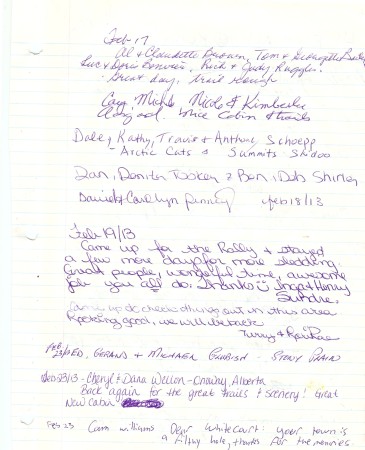 Feb 17
Al & Claudette Brown, Tom &
Luc & Doris Rick & Judy Ruggles.
Great day, trail rough
Cary, Michele Nicole & Kimberlee
nice Cabin & trails
Daley, Kathy, Travis & Anthony Schoepp
- Arctic Cats & Summits Skidoo
Dan, Donita Tookey & Ben, Deb Shirley
Daniel & Carllyn feb 18/13
Feb 19/13
Came up for the Rally & stayed
a few more days for more sledding.
Great people, wonderful time, awesome
job you all do. Thanks Inga & Henry
Sundre.
Came up to check things out in this area
Rocking good, we will be back
Terry &
Feb 23/13 ED, GERARD & MICHAEL - STONY PLAIN
Feb 23/13 - Cheryl & Dana Wellon - Onoway, Alberta
Back again for the great trails & scenery! Great
New cabin
Feb 23 Cam Williams Dear Whitecourt: your town is
a filthy hole, thanks for the memories.